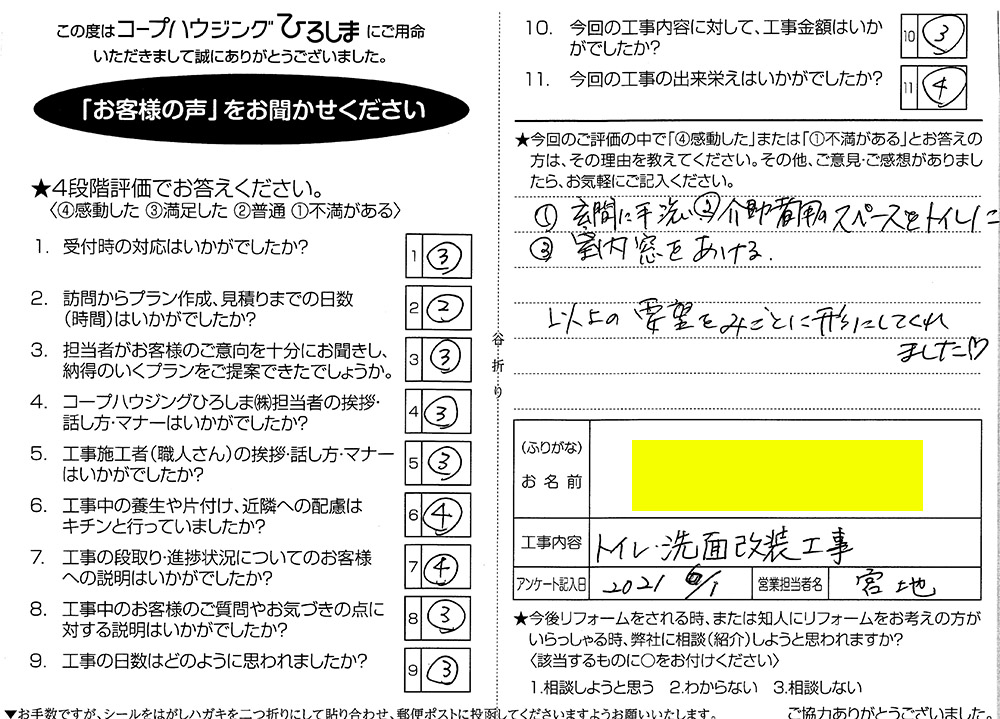 この度はコープハウジングひろしまにご用命
いただきまして誠にありがとうございました。
「お客様の声」をお聞かせください
★4段階評価でお答えください。
〈④感動した ③満足した ②普通 ①不満がある〉
1. 受付時の対応はいかがでしたか?
1 ③
2. 訪問からプラン作成、見積りまでの日数
(時間)はいかがでしたか?
2 ②
3. 担当者がお客様のご意向を十分にお聞きし、
納得のいくプランをご提案できたでしょうか。
3 ③
4. コープハウジングひろしま㈱担当者の挨拶・
話し方・マナーはいかがでしたか?
4 ③
5. 工事施工者(職人さん)の挨拶・話し方・マナー
はいかがでしたか?
5 ③
6. 工事中の養生や片付け、近隣への配慮は
キチンと行っていましたか?
6 ④
7. 工事の段取り・進捗状況についてのお客様
への説明はいかがでしたか?
7 ④
8. 工事中のお客様のご質問やお気づきの点に
対する説明はいかがでしたか?
8 ③
9. 工事の日数はどのように思われましたか?
9 ③
▼お手数ですが、シールをはがしハガキを二つ折りにして貼り合わせ、郵便ポストに投函してくださいますようお願いいたします。
谷折り
10. 今回の工事内容に対して、工事金額はいか
がでしたか?
10 ③
11. 今回の工事の出来栄えはいかがでしたか?
11 ④
★今回のご評価の中で「④感動した」または「①不満がある」とお答えの
方は、その理由を教えてください。その他、ご意見・ご感想がありまし
たら、お気軽にご記入ください。
① 玄関に手洗い ② 介助者用のスペースをトイレに
③ 室内窓をあける.
以上の要望をみごとに形にしてくれ
ました♡
(ふりがな)
お名前
工事内容 トイレ・洗面改装工事
アンケート記入日 2021 6/1 営業担当者名 宮地
★今後リフォームをされる時、または知人にリフォームをお考えの方が
いらっしゃる時、弊社に相談(紹介)しようと思われますか?
〈該当するものに○をお付けください〉
1.相談しようと思う 2.わからない 3.相談しない
ご協力ありがとうございました。